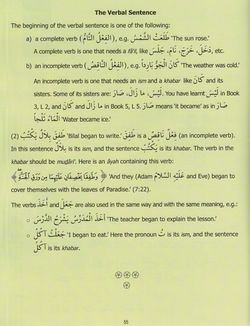 The Verbal Sentence
The beginning of the verbal sentence is one of the following:
a) a complete verb (الْفِعْلُ التَّامُّ), e.g. طَلَعَتِ الشَّمْسُ 'The sun rose.'
A complete verb is one that needs a fā'il, like دَخَلَ، خَرَجَ، نَامَ، جَلَسَ, etc.
b) an incomplete verb (الْفِعْلُ النَّاقِصُ), e.g. كَانَ الْجَوُّ بَارِداً 'The weather was cold.'
An incomplete verb is one that needs an ism and a khabar like كَانَ and its
sisters. Some of its sisters are: لَيْسَ، مَا زَالَ، صَارَ. You have learnt لَيْسَ in Book
3, L 2, and كَانَ and مَا زَالَ in Book 5, L 5. صَارَ means 'it became' as in صَارَ
الْمَاءُ ثَلْجاً 'Water became ice.'
(2) طَفِقَ بِلَالٌ يَكْتُبُ 'Bilal began to write.' طَفِقَ is a فِعْلٌ نَاقِصٌ (an incomplete verb).
In this sentence بِلَالٌ is its ism, and the sentence يَكْتُبُ is its khabar. The verb in the
khabar should be muḍāri'. Here is an āyah containing this verb:
﴿وَطَفِقَا يَخْصِفَانِ عَلَيْهِمَا مِن وَرَقِ الْجَنَّةِ﴾ 'And they (Adam عَلَيْهِ السَّلَام and Eve) began to
cover themselves with the leaves of Paradise.' (7:22).
The verbs أَخَذَ and جَعَلَ are also used in the same way and with the same meaning, e.g.:
o أَخَذَ الْمُدَرِّسُ يَشْرَحُ الدَّرْسَ 'The teacher began to explain the lesson.'
o جَعَلْتُ آكُلُ 'I began to eat.' Here the pronoun تُ is its ism, and the sentence
آكُلُ is its khabar.
55